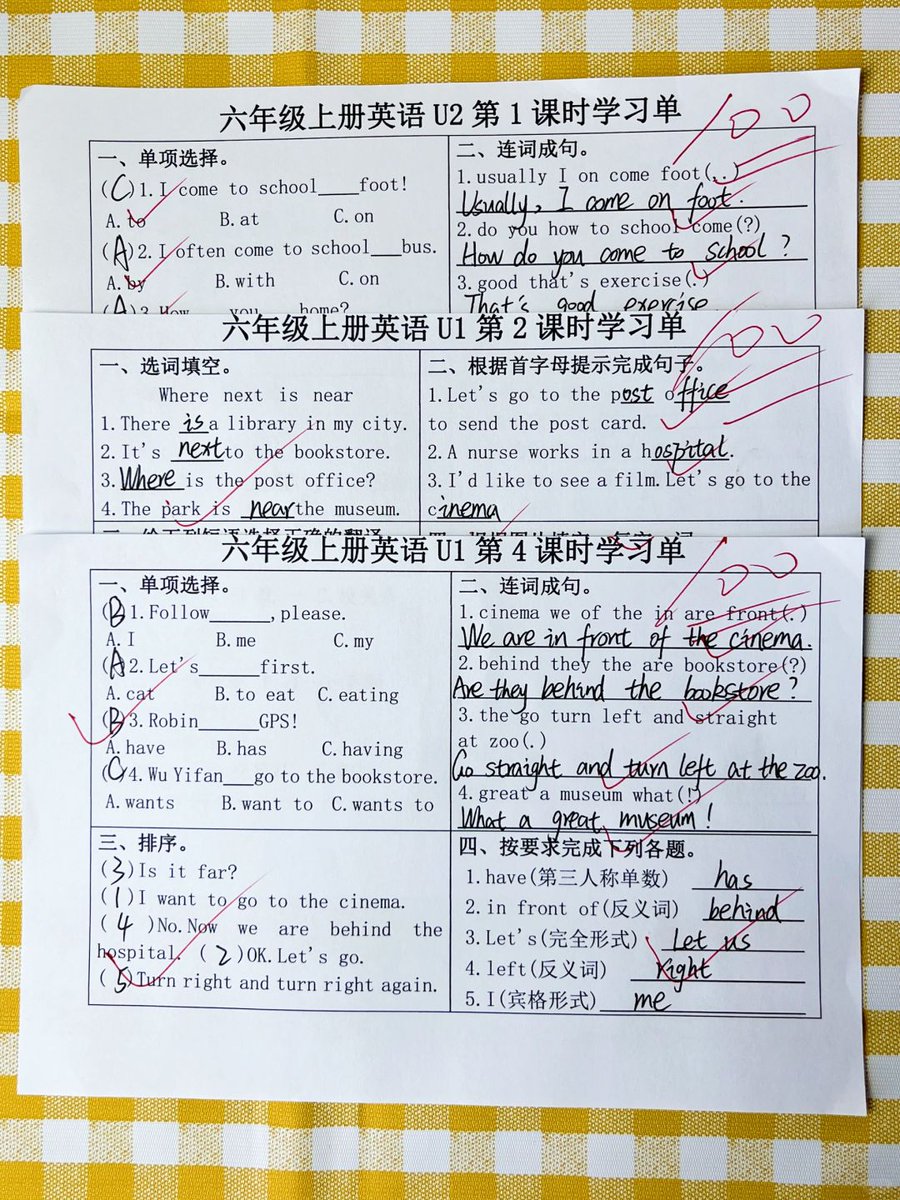 六年级上册英语U2第1课时学习单
100
一、单项选择。
(C)1.I come to school____foot!
A.to B.at C.on
(A)2.I often come to school___bus.
A.by B.with C.on
(A)3.How you home?
二、连词成句。
1.usually I on come foot(,.)
Usually, I come on foot.
2.do you how to school come(?)
How do you come to school?
3.good that's exercise(.)
That's good exercise
六年级上册英语U1第2课时学习单
100
一、选词填空。
Where next is near
1.There is a library in my city.
2.It's next to the bookstore.
3.Where is the post office?
4.The park is near the museum.
二、根据首字母提示完成句子。
1.Let's go to the post office
to send the post card.
2.A nurse works in a hospital.
3.I'd like to see a film.Let's go to the
cinema
六年级上册英语U1第4课时学习单
100
一、单项选择。
(B)1.Follow______,please.
A.I B.me C.my
(A)2.Let's______first.
A.cat B.to eat C.eating
(B)3.Robin______GPS!
A.have B.has C.having
(C)4.Wu Yifan___go to the bookstore.
A.wants B.want to C.wants to
二、连词成句。
1.cinema we of the in are front(.)
We are in front of the cinema.
2.behind they the are bookstore(?)
Are they behind the bookstore?
3.the go turn left and straight
at zoo(.)
Go straight and turn left at the zoo.
4.great a museum what(!)
What a great museum!
三、排序。
(3)Is it far?
(1)I want to go to the cinema.
(4)No.Now we are behind the
hospital. (2)OK.Let's go.
(5)Turn right and turn right again.
四、按要求完成下列各题。
1.have(第三人称单数) has
2.in front of(反义词) behind
3.Let's(完全形式) Let us
4.left(反义词) right
5.I(宾格形式) me